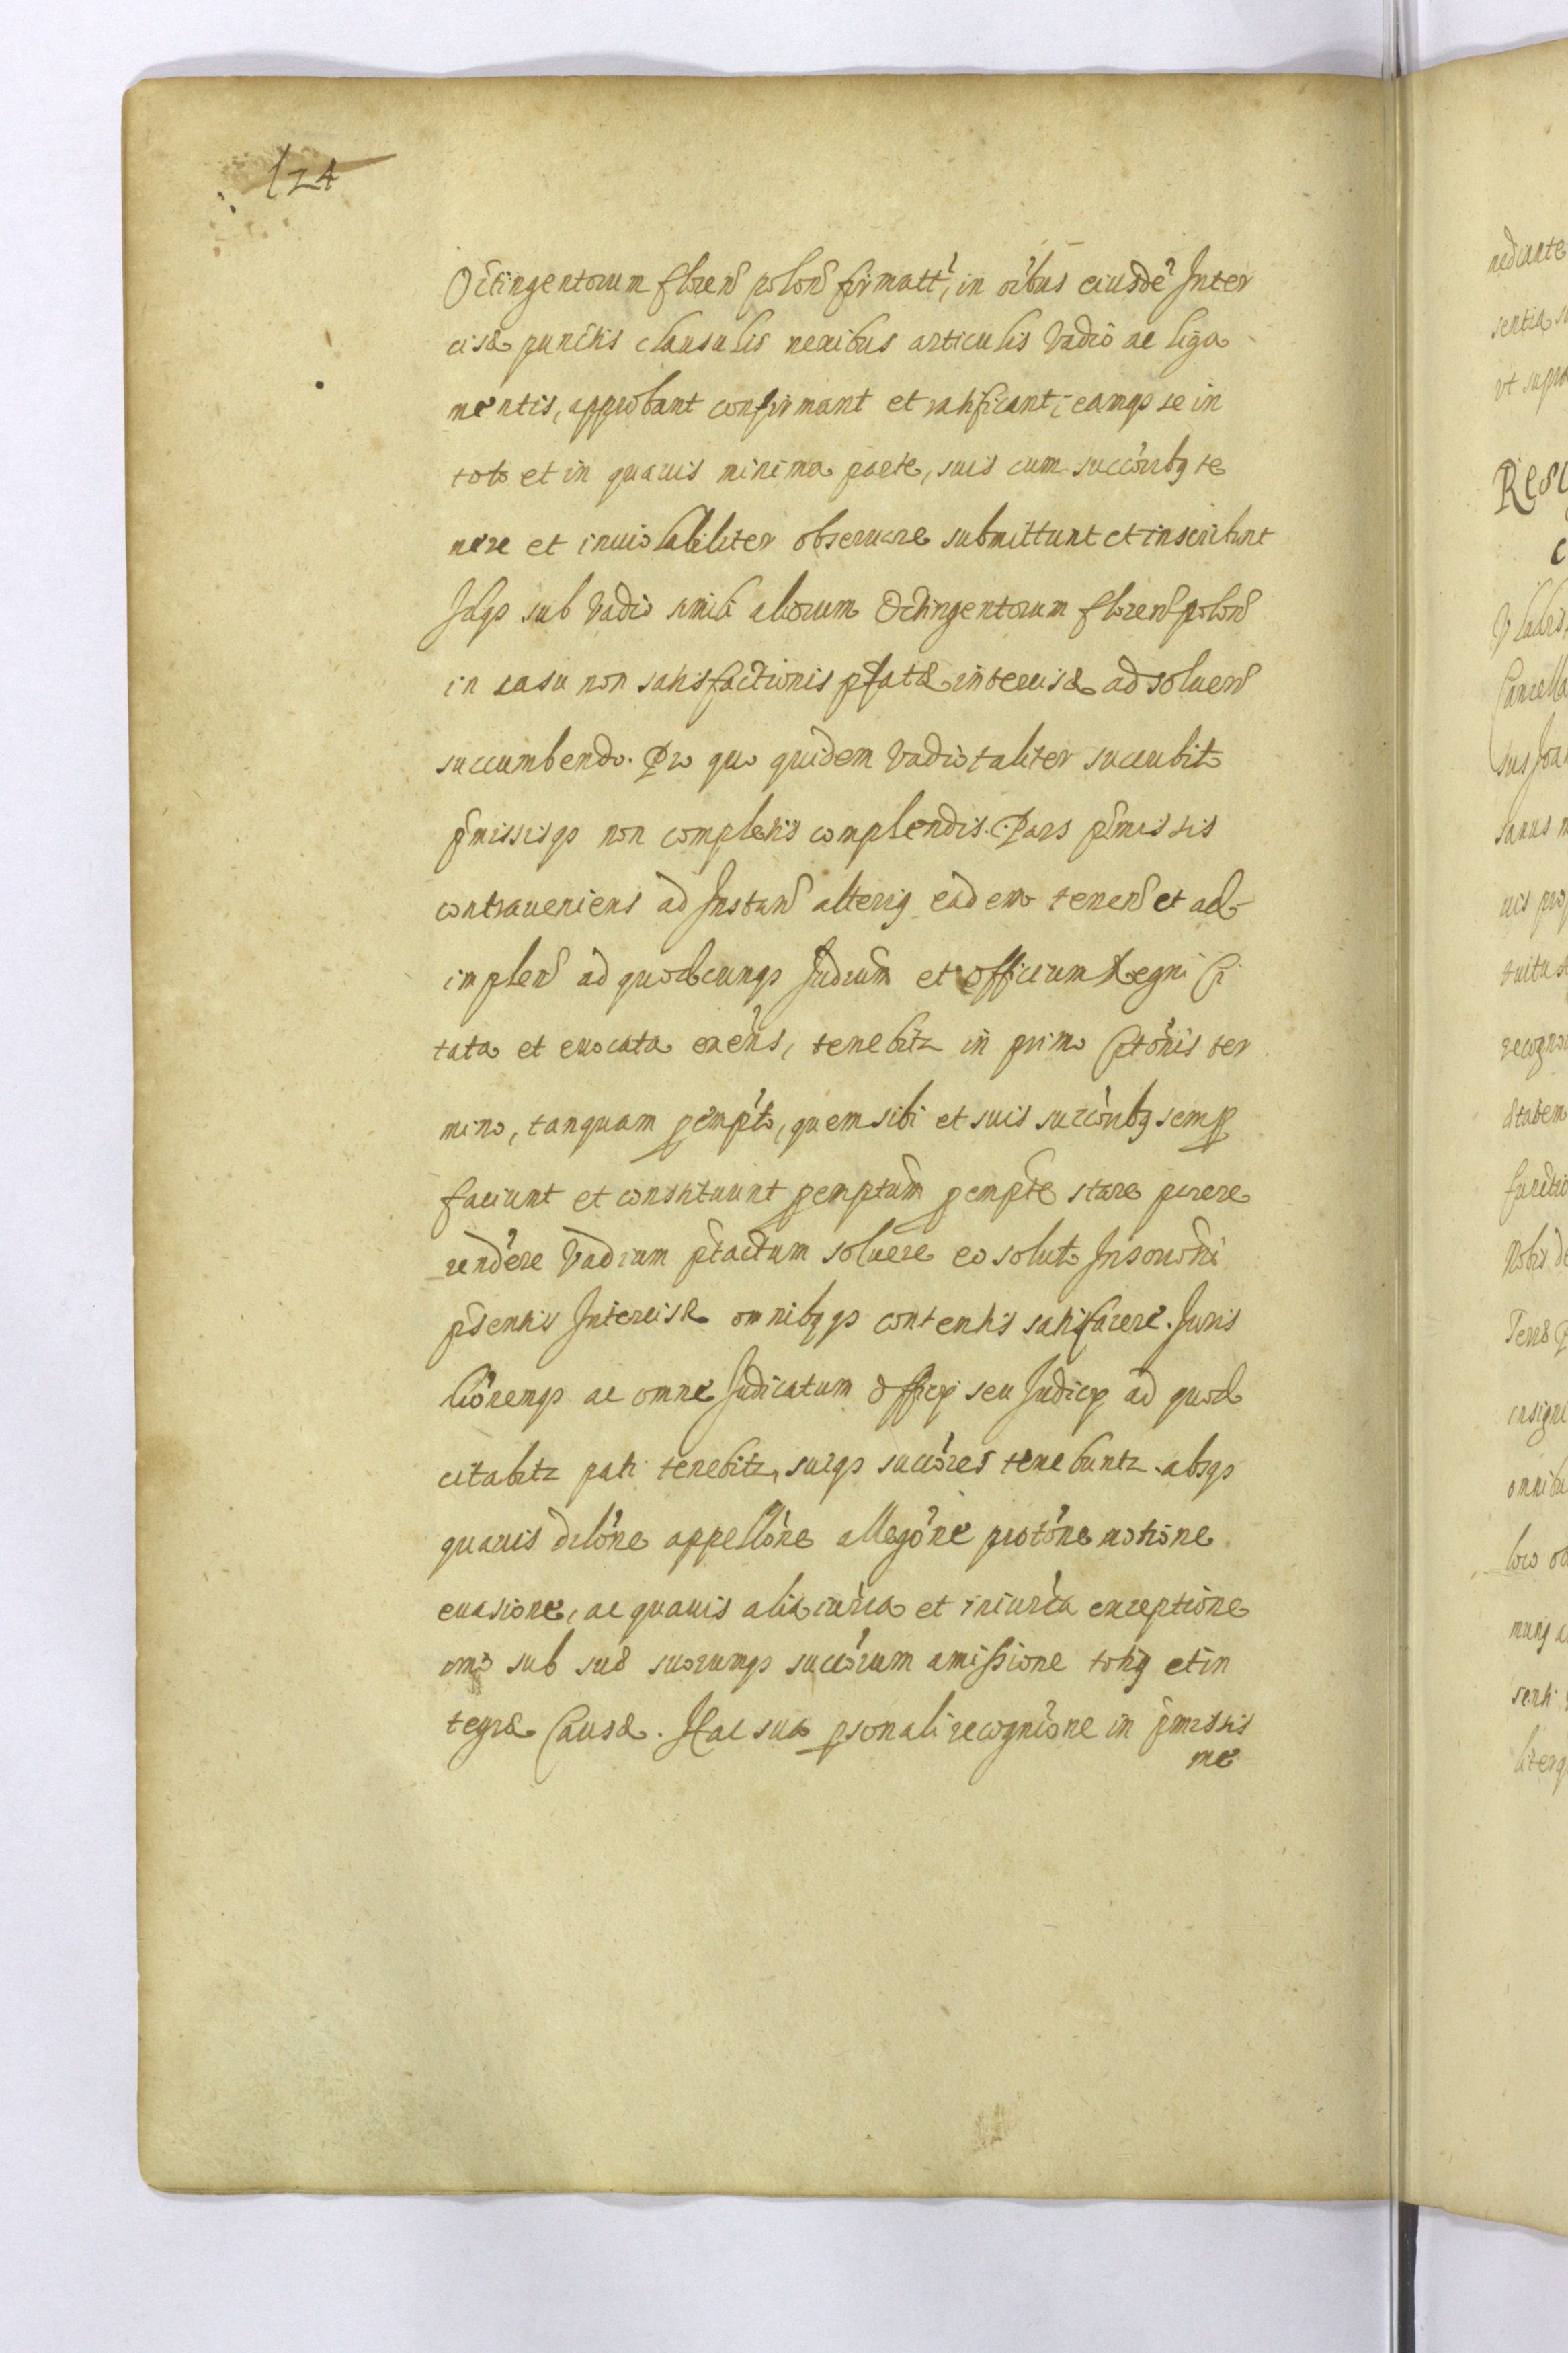 124
Octingentorum floren polon firmatt, in oibus eiusde Inter
cisæ punctis clausulis nexibus articulis Vadio ac liga
mentis, approbant confirmant et ratificant, eamqȝ se in
toto et in quauis minima parte, suis cum succoribꝫ te
nere et inuiolabiliter obseruare submittunt et inscribunt
Idqȝ sub Vadio simili aliorum Octingentorum floren polon
in casu non satisfactionis pfatæ intercisæ ad soluen
succumbendo. Pro quo quidem Vadio taliter succubito
pmissisqȝ non completis complendis. Pars pmissis
contraueniens ad Instan alterig eadem tenen et ad
implen ad quodcunqȝ Judium et officium Regni Ci
tata et euocata exens, tenebitz in primo Ctonis ter
mino, tanquam pempto, quem sibi et suis succoribꝫ semp
faciunt et constituunt pemptum pempte stare parere
rendere Vadium ptactum soluere eo soluto Insononi
psentis Intercisæ omnibꝫqȝ contentis satisfacere. Juris
lionemqȝ ac omne Judicatum Officij seu Judicij ad quod
citabitz pati tenebitz, suiqȝ succores tenebuntz absqȝ
quauis delone appellone allegone protone motione
euasione, ac quauis alia iuria et iniuria exceptione
omo sub suâ suorumqȝ succorum amissione totig et in
tegræ Causæ. Hac sua psonali recognione in pmissis
me
nediante
sentia
vt supra
Cancella
literq